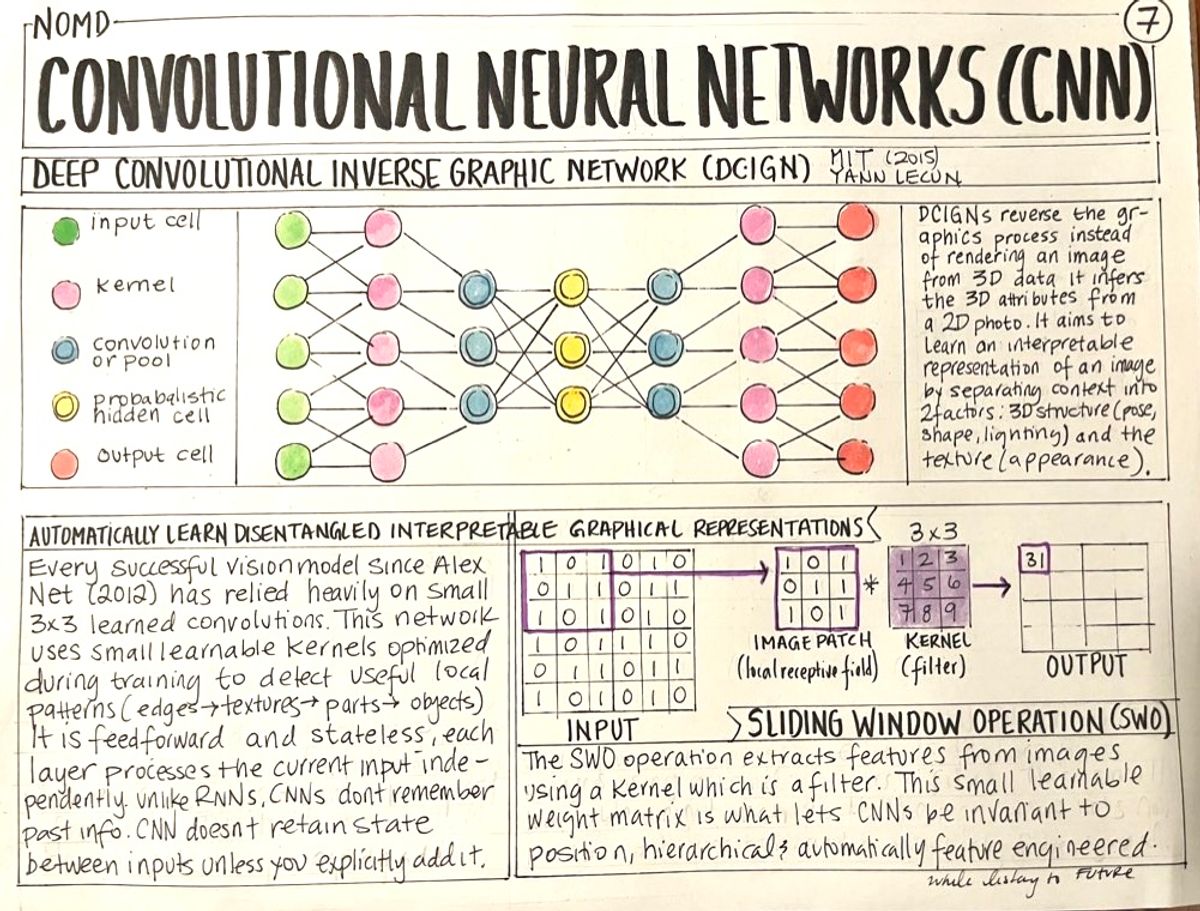 NOMD
7
CONVOLUTIONAL NEURAL NETWORKS (CNN)
DEEP CONVOLUTIONAL INVERSE GRAPHIC NETWORK (DCIGN)
MIT (2015)
YANN LECUN
input cell
kernel
convolution
or pool
probabalistic
hidden cell
output cell
DCIGNs reverse the gr-
aphics process instead
of rendering an image
from 3D data it infers
the 3D attributes from
a 2D photo. It aims to
learn an interpretable
representation of an image
by separating context into
2 factors: 3D structure (pose,
shape, lighting) and the
texture (appearance).
AUTOMATICALLY LEARN DISENTANGLED INTERPRETABLE GRAPHICAL REPRESENTATIONS
Every successful vision model since Alex
Net (2012) has relied heavily on small
3x3 learned convolutions. This network
uses small learnable kernels optimized
during training to detect useful local
patterns (edges→textures→parts→objects)
It is feedforward and stateless, each
layer processes the current input inde-
pendently. unlike RNNs, CNNs dont remember
past info. CNN doesnt retain state
between inputs unless you explicitly add it.
1 0 1 0 1 0
0 1 1 0 1 1
1 0 1 0 1 0
1 0 1 1 1 0
0 1 1 0 1 1
1 0 1 0 1 0
INPUT
1 0 1
0 1 1
1 0 1
IMAGE PATCH
(local receptive field)
*
3x3
1 2 3
4 5 6
7 8 9
KERNEL
(filter)
31
OUTPUT
SLIDING WINDOW OPERATION (SWO)
The SWO operation extracts features from images
using a Kernel which is a filter. This small learnable
weight matrix is what lets CNNs be invariant to
position, hierarchical & automatically feature engineered.
while to FUTURE